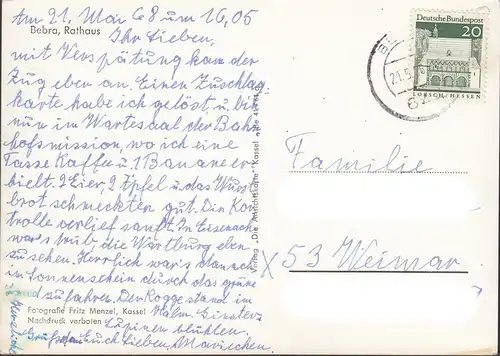 Am 21. Mai 68 um 16,05
Bebra, Rathaus
Ihr Lieben,
mit Verspätung kam der
Zug eben an. Einen Zuschlag-
karte habe ich gelöst u. bin
nun im Wartesaal der Bahn
hofsmission, wo ich eine
Tasse Kaffee u. 1 Banane er-
hielt. 2 Eier, 2 Äpfel u. das Wurst
brot schmeckten gut. Die Kon
trolle verlief sanft. In Eisenach
war's trüb, die Wartburg eben
zu sehen. Herrlich war's dannach
in Sonnenschein durch das grüne
zu fahren. Der Roggen stand im
Fotografie Fritz Menzel, Kassel
Halm. Ginster u.
Nachdruck verboten
Lupinen blühten.
Grüße Euch Lieben, Mariechen.
Herzliche
Verlag „Die Ansichtskarte" Kassel
Deutsche Bundespost
20
LORSCH/HESSEN
21.5.
Familie
X 53 Weimar